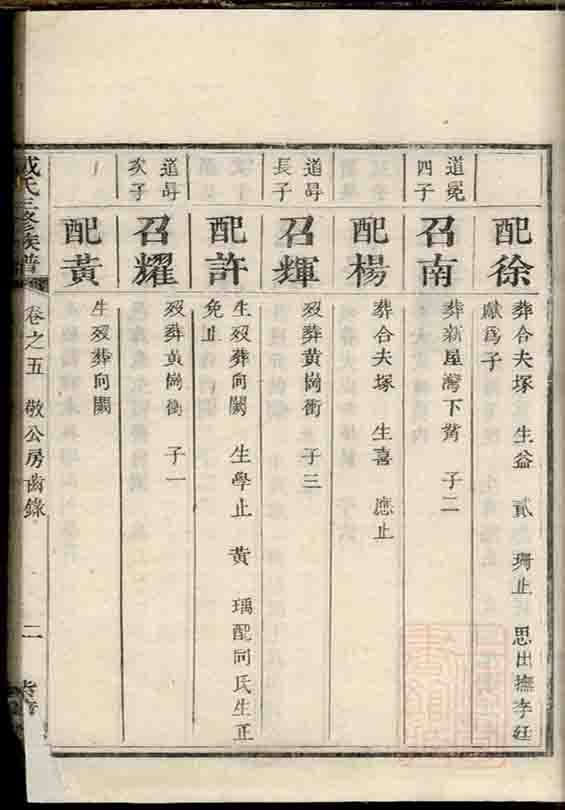 配徐
葬合夫塚 生益 貳 珊止 思出撫李廷
獻爲子
道冕
四子
召南
葬新屋灣下 子二
配楊
葬合夫塚 生喜 應止
道尋
長子
召輝
歿葬黃崗衝 子三
配許
生歿葬向闕 生學止 黄 瑀配何氏生正
免止
道尋
次子
召耀
歿葬黃崗衝 子一
配黃
生歿葬向闕
氏三修族譜
卷之五 敬公房齒錄 二